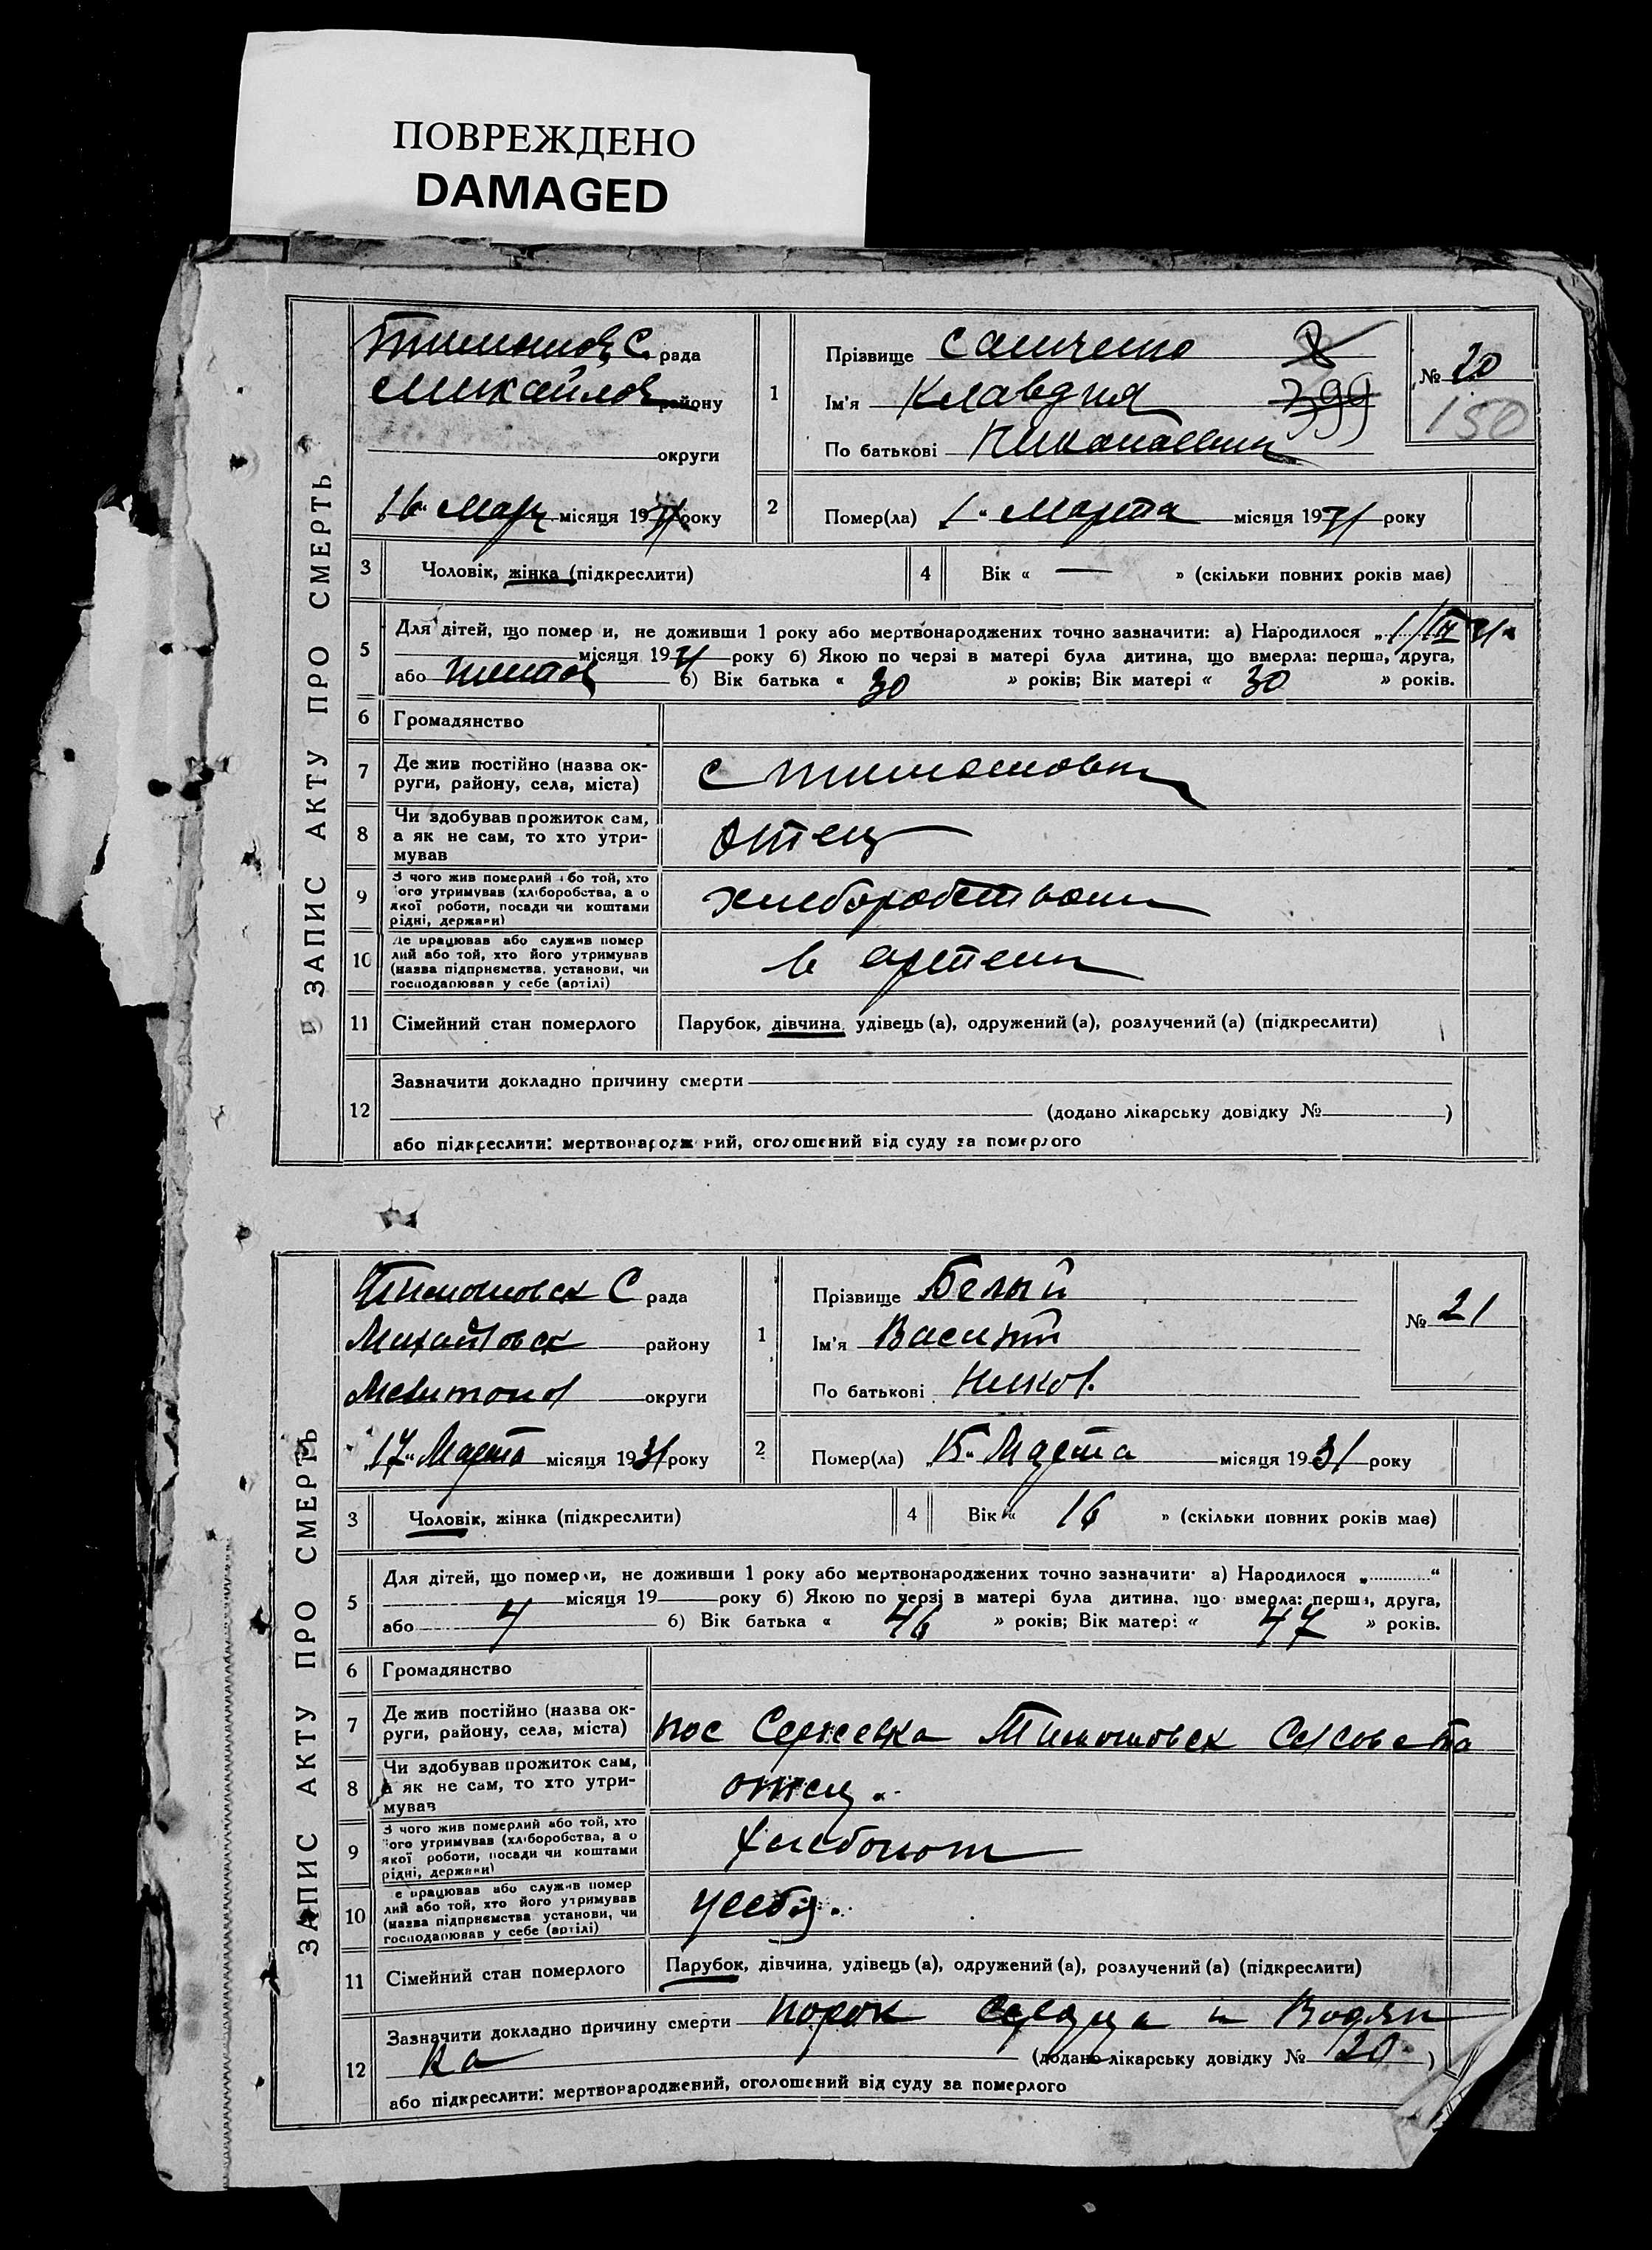 ПОВРЕЖДЕНО
DAMAGED
ЗАПИС АКТУ ПРО СМЕРТЬ
Тимошов С. рада
Михайлов району
округи
„16“ Мар місяця 1931 року
1
Прізвище
Ім'я Клавдия 399
По батькові
№ 20
150
2
Помер(ла) „1“ Марта місяця 1931 року
3
Чоловік, жінка (підкреслити)
4
Вік « — » (скільки повних років має)
5
Для дітей, що померли, не доживши 1 року або мертвонароджених точно зазначити: а) Народилося „
місяця 1931 року б) Якою по черзі в матері була дитина, що вмерла: перша, друга,
або б) Вік батька « 30 » років; Вік матері « 30 » років.
6
Громадянство
7
Де жив постійно (назва ок-
руги, району, села, міста)
с Тимошовки
8
Чи здобував прожиток сам,
а як не сам, то хто утри-
мував
Отец
9
З чого жив померлий або той, хто
ого утримував (хліборобства, а о
якої роботи, посади чи коштами
рідні, держави)
хлеборобством
10
Де працював або служив помер
лий або той, хто його утримував
(назва підприємства, установи, чи
господарював у себе (артілі)
в артели
11
Сімейний стан померлого
Парубок, дівчина, удівець (а), одружений (а), розлучений (а) (підкреслити)
12
Зазначити докладно причину смерти
(додано лікарську довідку № )
або підкреслити: мертвонароджений, оголошений від суду за померлого
ЗАПИС АКТУ ПРО СМЕРТЬ
Тимошовск С рада
Михайловск району
Мелитоп округи
„17“ Марта місяця 1931 року
1
Прізвище Белый
Ім'я Василий
По батькові
№ 21
2
Помер(ла) „15“ Марта місяця 1931 року
3
Чоловік, жінка (підкреслити)
4
Вік « 16 » (скільки повних років має)
5
Для дітей, що померли, не доживши 1 року або мертвонароджених точно зазначити: а) Народилося „ “
місяця 19 року б) Якою по черзі в матері була дитина, що вмерла: перша, друга,
або 4 б) Вік батька « 46 » років; Вік матері « 47 » років.
6
Громадянство
7
Де жив постійно (назва ок-
руги, району, села, міста)
пос Тимошовск Сельсовета
8
Чи здобував прожиток сам,
а як не сам, то хто утри-
мував
отец.
9
З чого жив померлий або той, хто
ого утримував (хліборобства, а о
якої роботи, посади чи коштами
рідні, держави)
10
е працював або служив помер
лий або той, хто його утримував
(назва підприємства, установи, чи
господарював у себе (артілі)
у себя.
11
Сімейний стан померлого
Парубок, дівчина, удівець (а), одружений (а), розлучений (а) (підкреслити)
12
Зазначити докладно причину смерти порок Сердца и Водян
ка (додано лікарську довідку № 20 )
або підкреслити: мертвонароджений, оголошений від суду за померлого